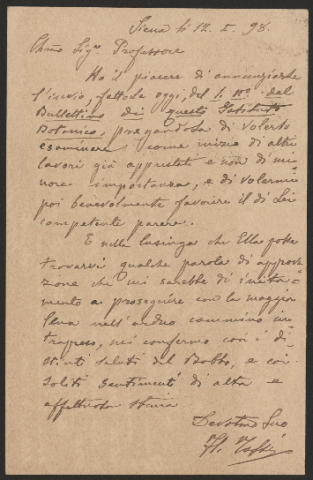 Siena li 12. I. 98.
Chmo Sigr Professore
Ho il piacere di annunziarle
l'invio, fattole oggi, del 1. No. del
Bullettino di questo Istituto
Botanico, pregandola di volerlo
esaminare come inizio di altri
lavori già apprestati e non di mi-
nore importanza, e di volermi
poi benevolmente favorire il di Lei
competente parere.
E nella lusinga che Ella possa
trovarvi qualche parola di approva-
zione che mi sarebbe di incita-
mento a proseguire con la maggior
lena nell'arduo cammino in-
trapreso, mi confermo con i di-
stinti saluti del Babbo, e coi
soliti sentimenti di alta e
affettuosa stima
Devotmo Suo
Fl. Tassi